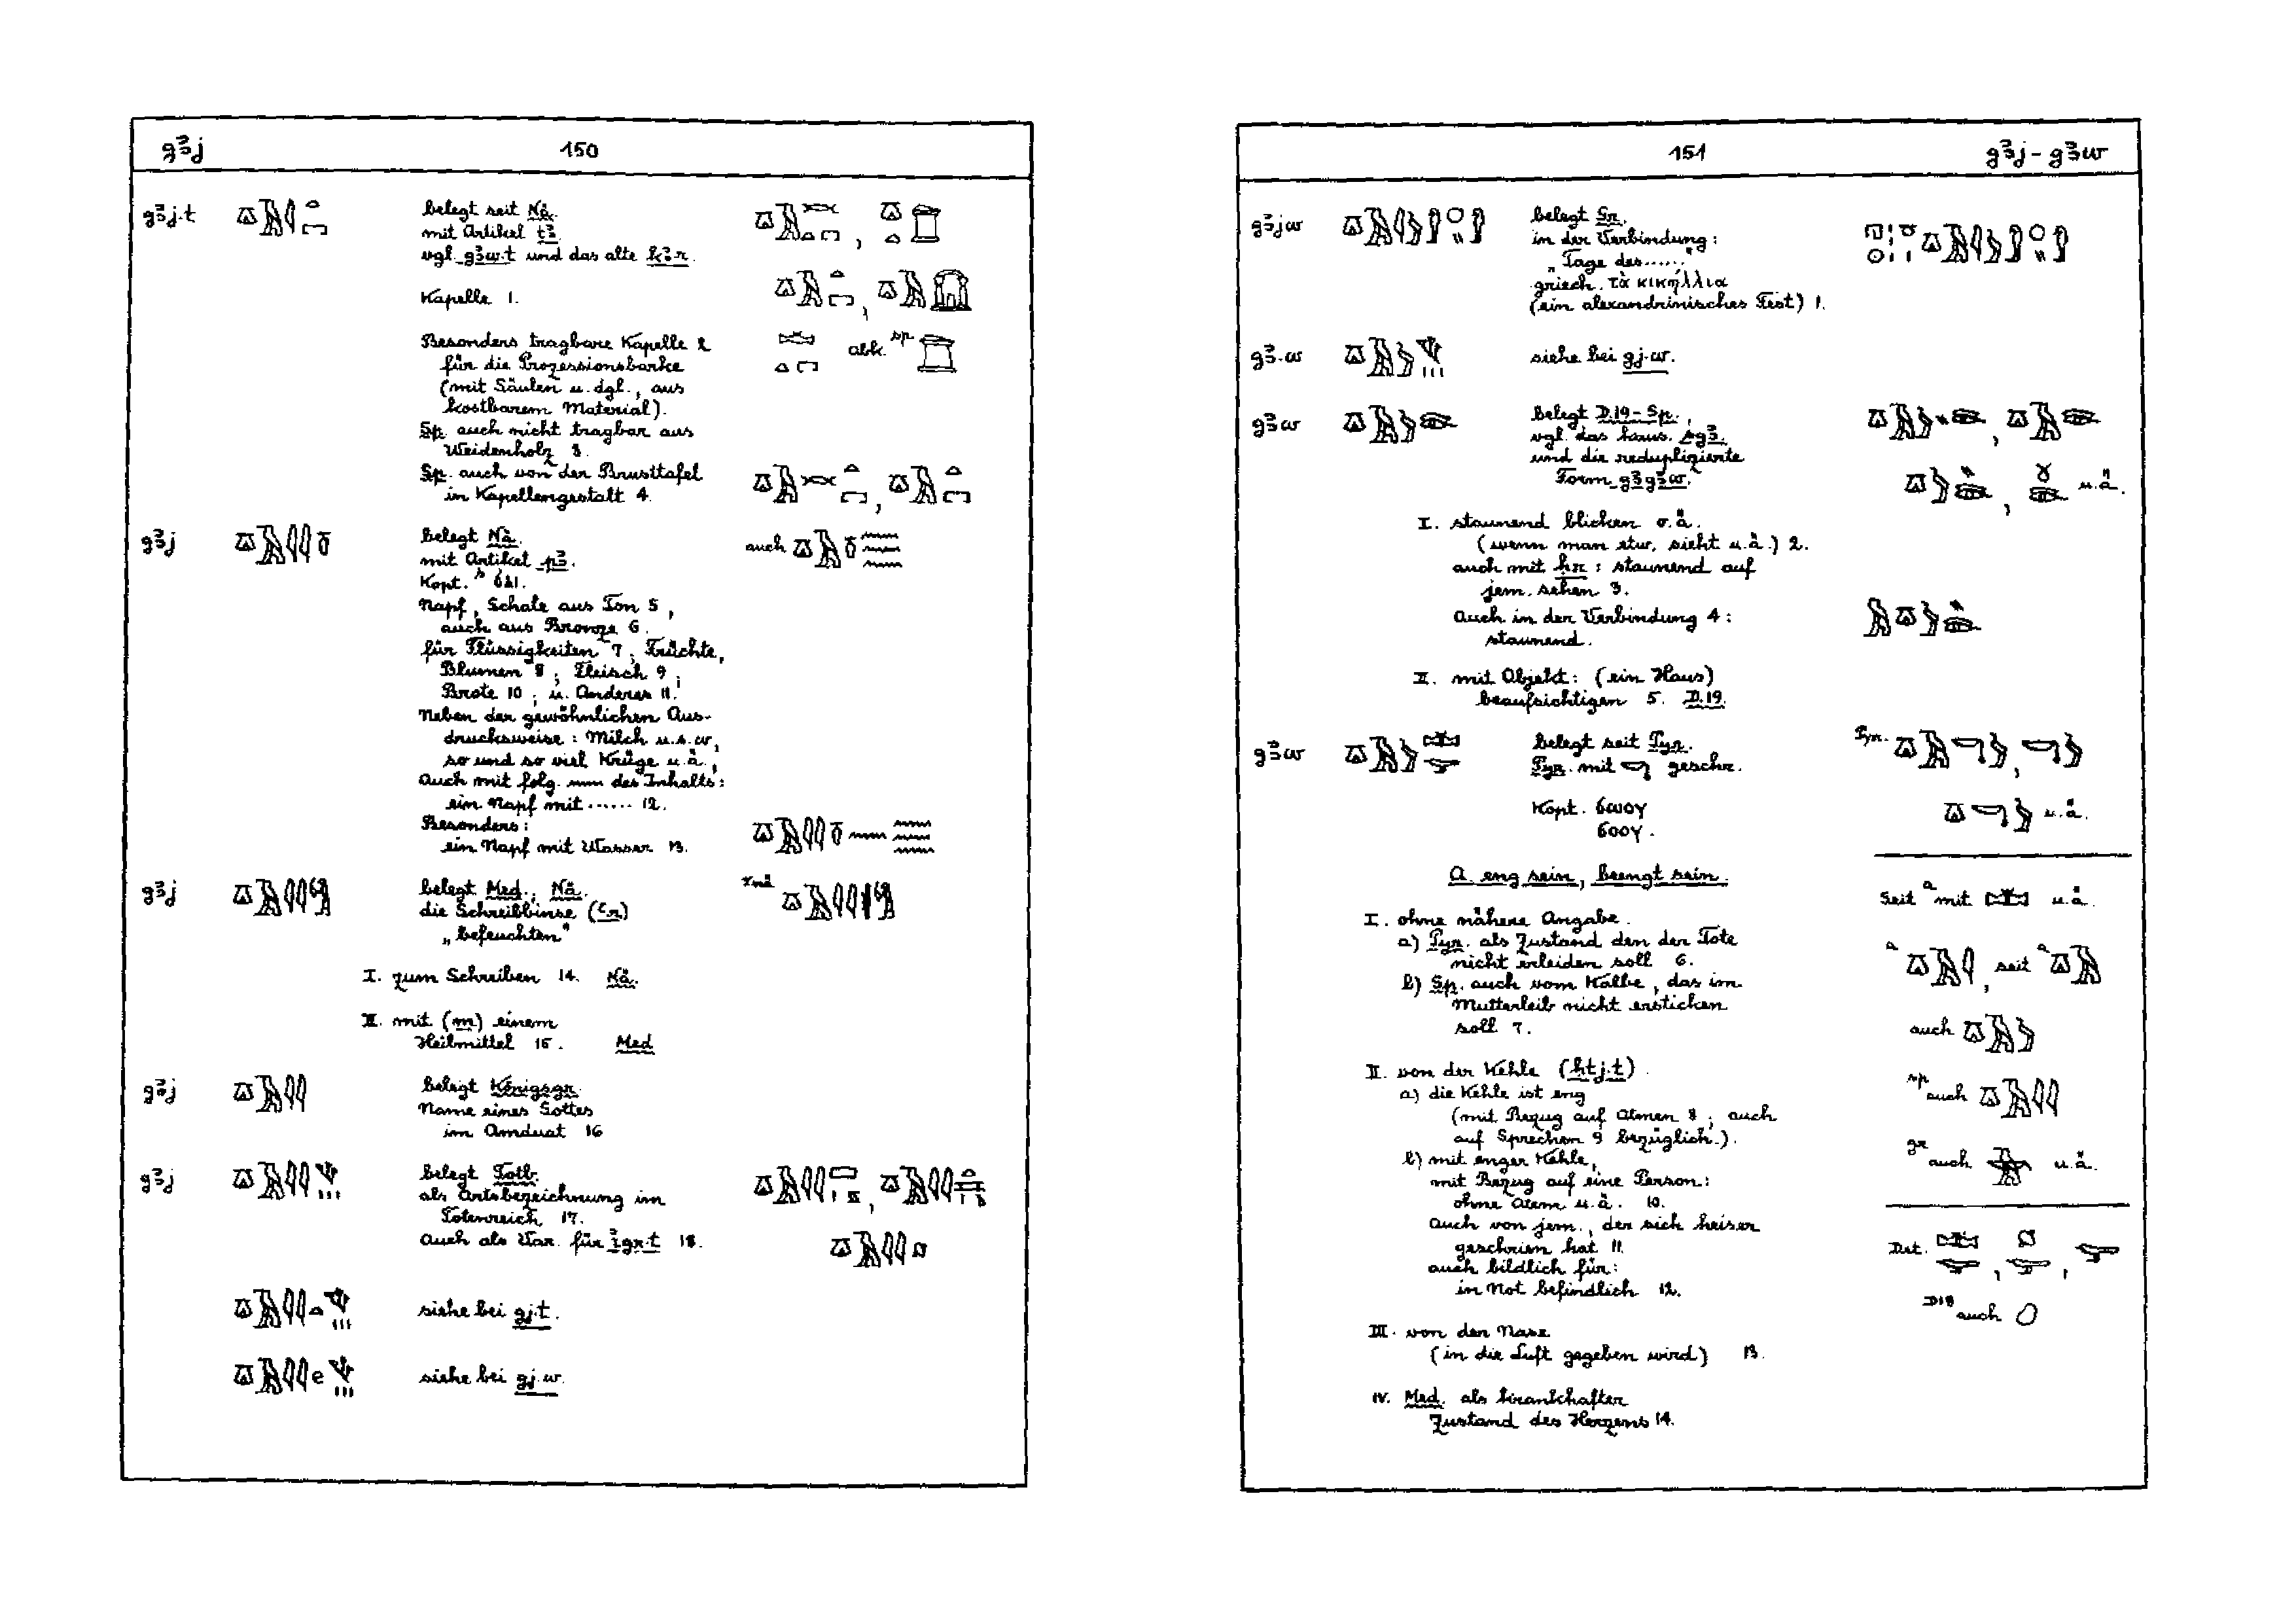 gꜣj
150
gꜣj.t
belegt seit Nä.
mit Artikel tꜣ
vgl. gꜣw.t und das alte kꜣr.
Kapelle 1.
Besonders tragbare Kapelle 2
für die Prozessionsbarke
(mit Säulen u. dgl., aus
kostbarem Material).
abk. Sp.
Sp. auch nicht tragbar aus
Weidenholz 3.
Sp. auch von der Brusttafel
in Kapellengestalt 4.
gꜣj
belegt Nä.
mit Artikel pꜣ.
Kopt.
auch
Napf, Schale aus Ton 5,
auch aus Bronze 6.
für Flüssigkeiten 7; Früchte,
Blumen 8; Fleisch 9;
Brote 10; u. Anderes 11.
Neben der gewöhnlichen Aus-
drucksweise: Milch u.s.w,
so und so viel Krüge u.ä.,
Auch mit folg. nun des Inhalts:
ein Napf mit ...... 12.
Besonders:
ein Napf mit Wasser 13.
gꜣj
belegt Med.; Nä.
die Schreibbinse (ꜥr)
„befeuchten"
I. zum Schreiben 14. Nä.
II. mit (m) einem
Heilmittel 15. Med
gꜣj
belegt Königsgr.
Name eines Gottes
im Amduat 16
gꜣj
belegt Totb.
als Ortsbezeichnung im
Totenreich 17.
Auch als Var. für igr.t 18.
siehe bei gj.t.
siehe bei gj.w.
151
gꜣj - gꜣw
gꜣjw
belegt Gr.
in der Verbindung:
„Tage des ......"
griech. τὰ κικήλλια
(ein alexandrinisches Fest) 1.
gꜣ.w
siehe bei gj.w.
gꜣw
belegt D.19 - Sp.,
vgl. das kaus. sgꜣ.
und die reduplizierte
Form gꜣgꜣw.
u.ä.
I. staunend blicken o.ä.
(wenn man etw. sieht u.ä.) 2.
auch mit ḥr: staunend auf
jem. sehen 3.
Auch in der Verbindung 4:
staunend.
II. mit Objekt: (ein Haus)
beaufsichtigen 5. D.19.
gꜣw
belegt seit Pyr.
Pyr. mit geschr.
Pyr.
Kopt. ϭⲱⲟⲩ
ϭⲟⲟⲩ.
u.ä.
A. eng sein, beengt sein.
I. ohne nähere Angabe.
a) Pyr. als Zustand den der Tote
nicht erleiden soll 6.
b) Sp. auch vom Kalbe, das im
Mutterleib nicht ersticken
soll 7.
II. von der Kehle (ḥtj.t)
a) die Kehle ist eng
(mit Bezug auf Atmen 8; auch
auf Sprechen 9 bezüglich.).
b) mit enger Kehle,
mit Bezug auf eine Person:
ohne Atem u.ä. 10.
Auch von jem., der sich heiser
geschrien hat 11.
auch bildlich für:
in Not befindlich 12.
III. von der Nase
(in die Luft gegeben wird) 13.
IV. Med. als krankhafter
Zustand des Herzens 14.
Seit a mit u.ä.
a, seit a
auch
Sp. auch
gr auch u.ä.
Det.
D18 auch